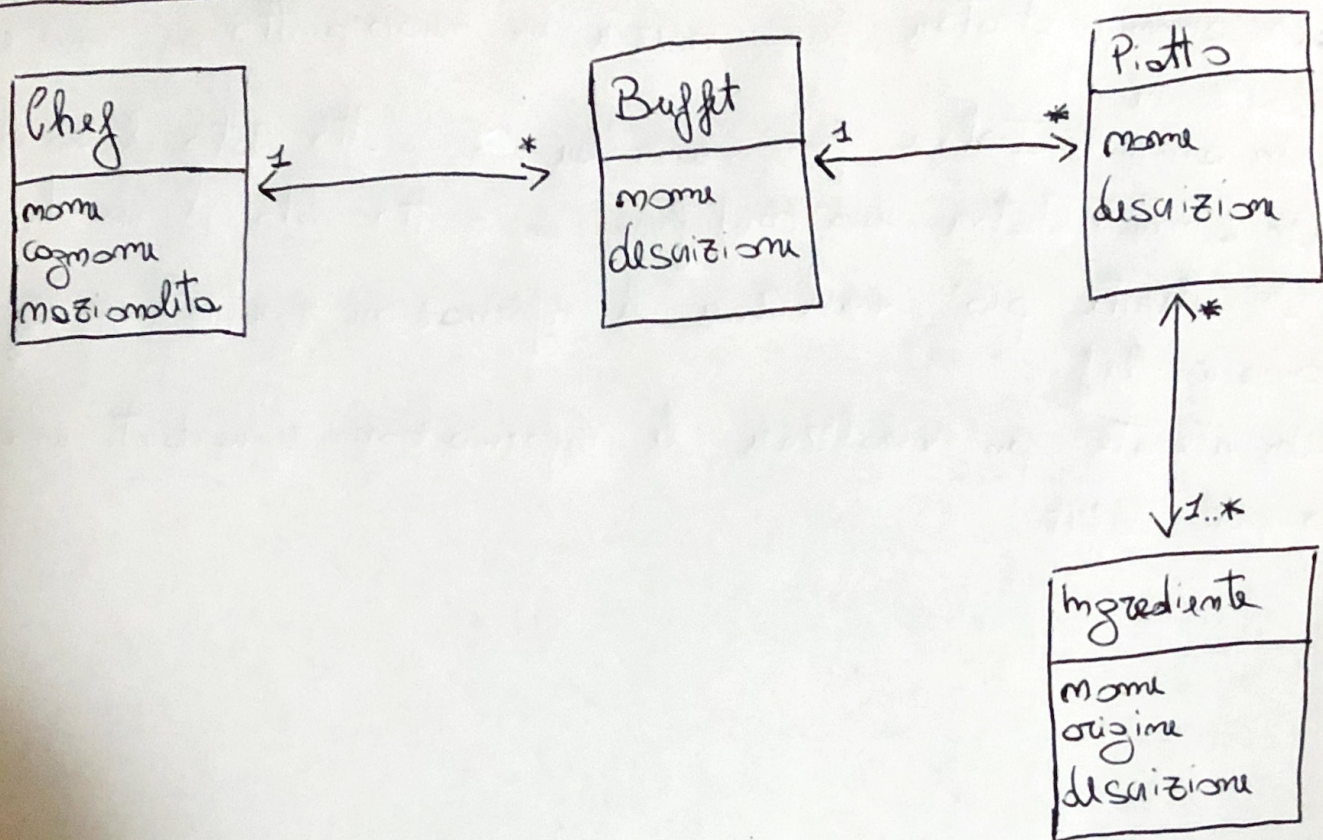 Chef
nome
cognome
nazionalita
1
*
Buffet
nome
descrizione
1
*
Piatto
nome
descrizione
*
1..*
Ingrediente
nome
origine
descrizione